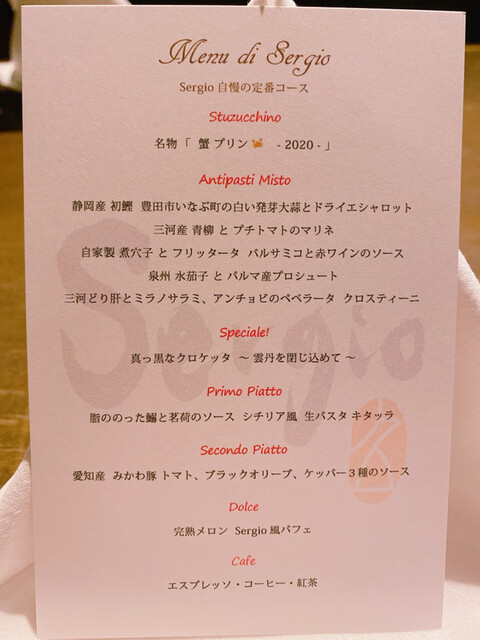 Menu di Sergio
Sergio 自慢の定番コース
Stuzucchino
名物「 蟹 プリン🦀 - 2020 - 」
Antipasti Misto
静岡産 初鰹 豊田市いなぶ町の白い発芽大蒜とドライエシャロット
三河産 青柳 と プチトマトのマリネ
自家製 煮穴子 と フリッタータ バルサミコと赤ワインのソース
泉州 水茄子 と パルマ産プロシュート
三河どり肝とミラノサラミ、アンチョビのペペラータ クロスティーニ
Speciale!
真っ黒なクロケッタ ～ 雲丹を閉じ込めて ～
Primo Piatto
脂ののった鰯と茗荷のソース シチリア風 生パスタ キタッラ
Secondo Piatto
愛知産 みかわ豚 トマト、ブラックオリーブ、ケッパー３種のソース
Dolce
完熟メロン Sergio 風パフェ
Cafe
エスプレッソ・コーヒー・紅茶
Sergio